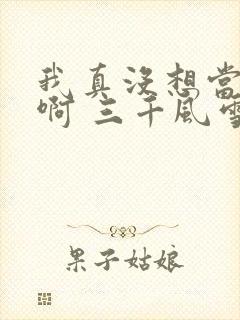 我真没想当
啊 三千风雪
果子姑娘